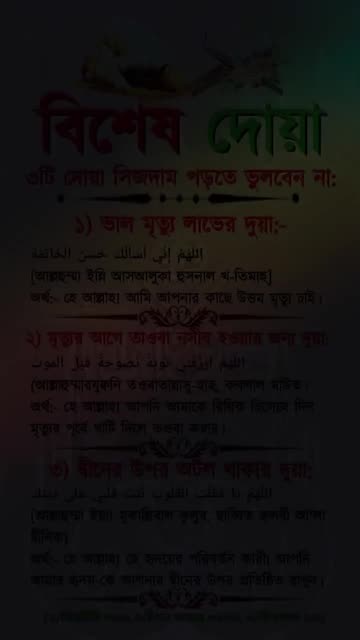 বিশেষ দোয়া
৩টি দোয়া সিজদায় পড়তে ভুলবেন না:
১) ভাল মৃত্যু লাভের দুয়া:-
اللهم إني أسألك حسن الخاتمة
[আল্লাহুম্মা ইন্নি আসআলুকা হুসনাল খ-তিমাহ]
অর্থ:- হে আল্লাহ! আমি আপনার কাছে উত্তম মৃত্যু চাই।
২) মৃত্যুর আগে তাওবা নসীব হওয়ার জন্য দুয়া:
اللهم ارزقني توبة نصوحة قبل الموت
অর্থ:- হে আল্লাহ! আপনি আমাকে রিযিক হিসেবে দিন
মৃত্যুর পূর্বে খাটি দিলে তওবা করার।
৩) দ্বীনের উপর অটল থাকার দুয়া:
اللهم يا مقلب القلوب ثبت قلبي على دينك
[আল্লাহুম্মা ইয়া মুকাল্লিবাল কুলুব, ছাব্বিত কলবী আলা
দ্বীনিক]
অর্থ:- হে আল্লাহ! হে হৃদয়ের পরিবর্তন কারী! আপনি
আমার হৃদয় কে আপনার দ্বীনের উপর প্রতিষ্ঠিত রাখুন।